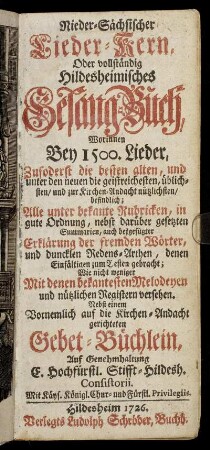 Nieder-Sächsischer
Lieder-Kern,
Oder vollständig
Hildesheimisches
Gesang-Buch,
Worinnen
Bey 1500. Lieder,
Zuförderst die besten alten, und
unter den neuen die geistreichesten, üblich-
sten/ und zur Kirchen-Andacht nützlichsten,
befindlich;
Alle unter bekante Rubricken, in
gute Ordnung, nebst darüber gesetzten
Summarien, auch beygefügter
Erklärung der fremden Wörter,
und duncklen Redens-Arthen, denen
Einfältigen zum Besten gebracht;
Wie nicht weniger
Mit denen bekantesten Melodeyen
und nützlichen Registern versehen.
Nebst einem
Vornemlich auf die Kirchen-Andacht
gerichteten
Gebet-Büchlein,
Auf Genehmhaltung
E. Hochfürstl. Stifft-Hildesh.
Consistorii.
Mit Käys. Königl. Chur- und Fürstl. Privilegiis.
Hildesheim 1726.
Verlegts Ludolph Schröder, Buchh.